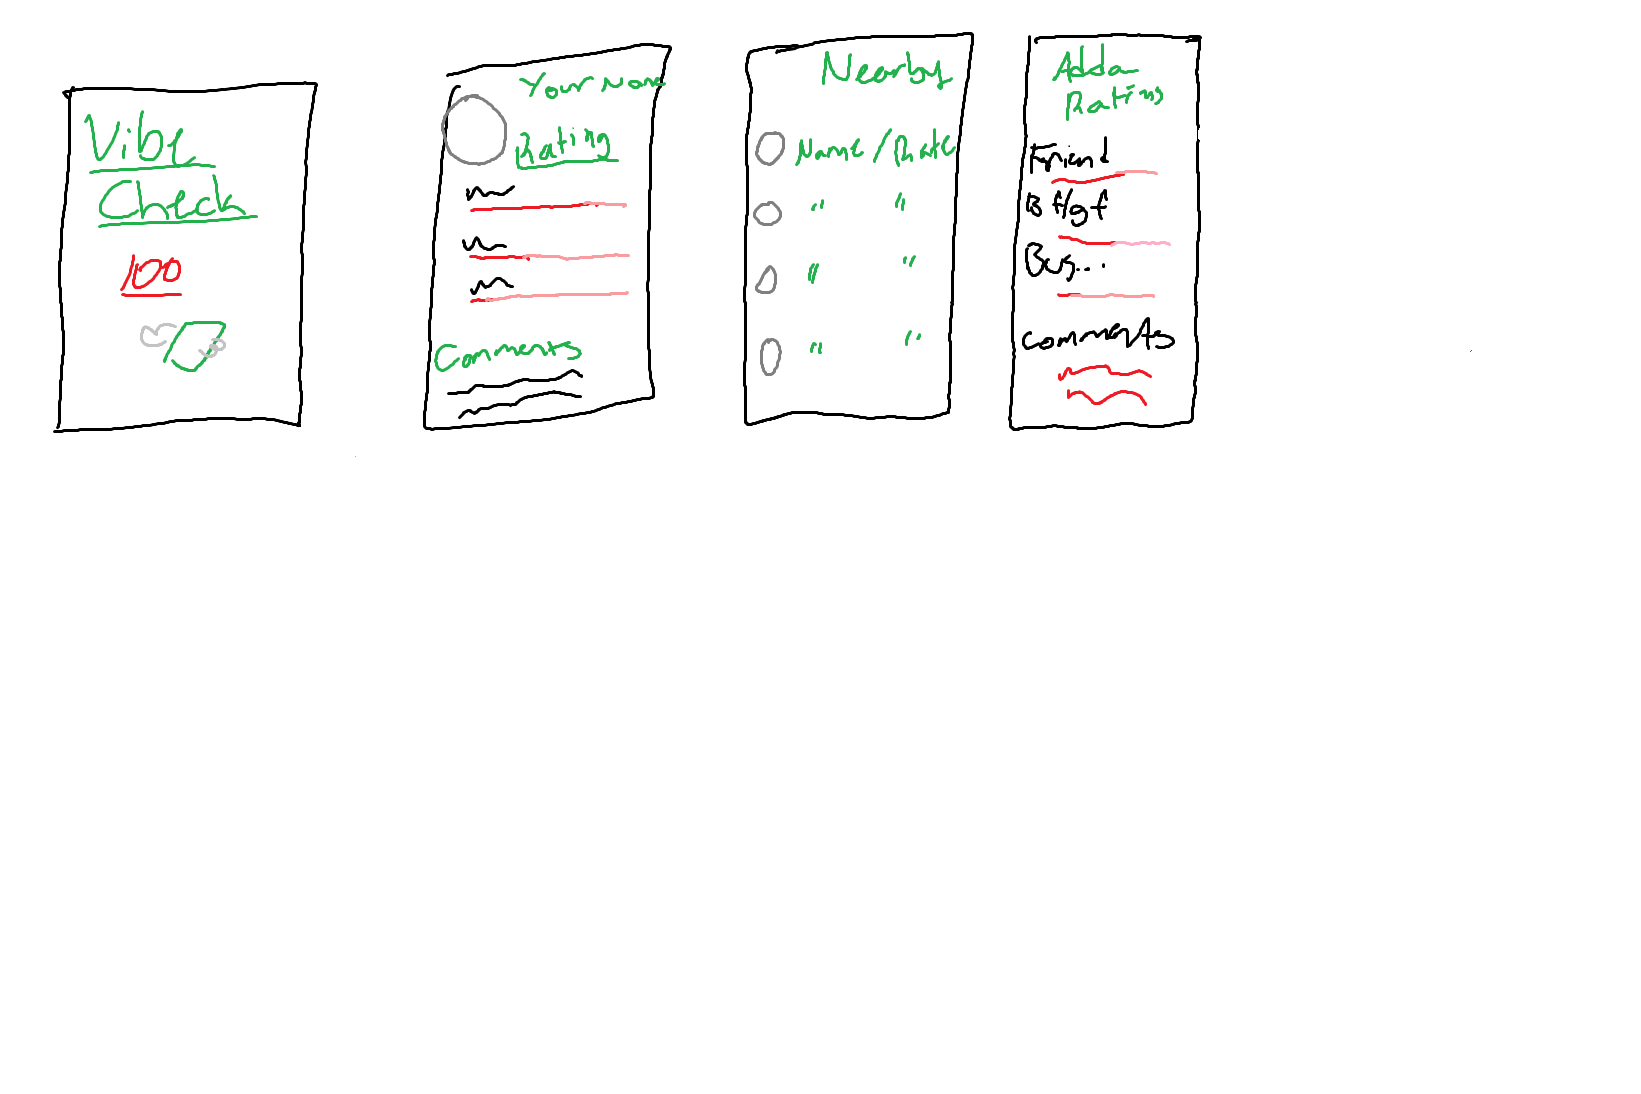 Vibe
Check
100
Your Name
Rating
Comments
Nearby
Name / Rate
" "
" "
" "
Adda
Rating
Friend
Bf/gf
Bus...
comments